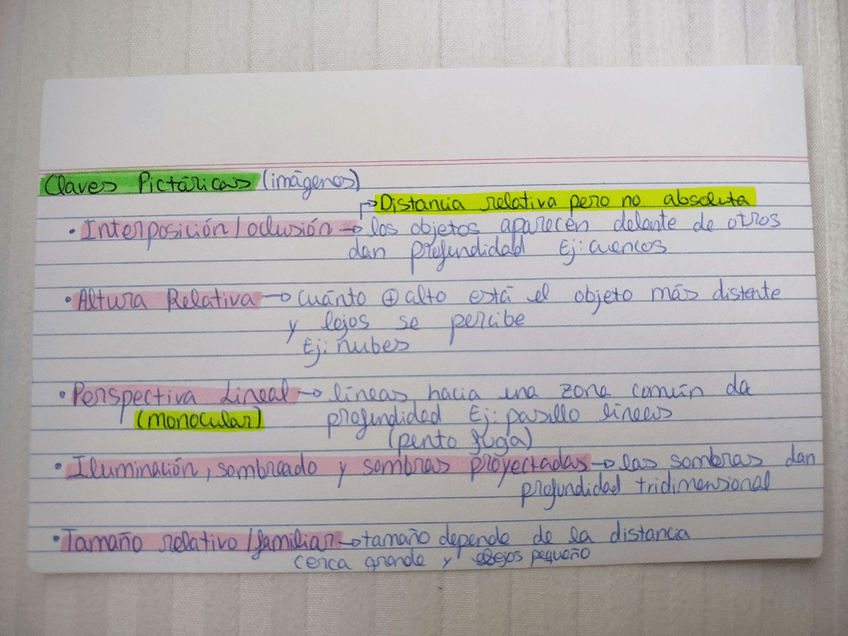 Claves Pictóricas (imágenes)
→ Distancia relativa pero no absoluta
• Interposición / oclusión → los objetos aparecen delante de otros
dan profundidad Ej: cuencos
• Altura Relativa → cuánto ⊕ alto está el objeto más distente
y lejos se percibe
Ej: nubes
• Perspectiva Lineal → líneas hacia una zona común da
(monocular) profundidad Ej: pasillo lineas
(pento fuga)
• Iluminación, sombreado y sombras proyectadas → las sombras dan
profundidad tridimensional
• Tamaño relativo / familiar → tamaño depende de la distancia
cerca grande y lejos pequeño